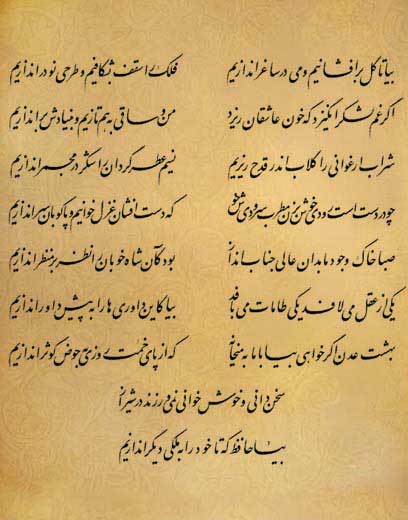 بیا تا گل برافشانیم و می در ساغر اندازیم فلک را سقف بشکافیم و طرحی نو در اندازیم
اگر غم لشکر انگیزد که خون عاشقان ریزد من و ساقی بهم تازیم و بنیادش براندازیم
شراب ارغوانی را گلاب اندر قدح ریزیم نسیم عطر گردان را شکر در مجمر اندازیم
چو در دست است رودی خوش بزن مطرب سرودی خوش که دست افشان غزل خوانیم و پاکوبان سر اندازیم
صبا خاک وجود ما بدان عالی جناب انداز بود کان شاه خوبان را نظر بر منظر اندازیم
یکی از عقل می لافد یکی طامات می بافد بیا کاین داوری ها را به پیش داور اندازیم
بهشت عدن اگر خواهی بیا با ما به میخانه که از پای خمت روزی به حوض کوثر اندازیم
سخن دانی و خوش خوانی نمی ورزند در شیراز
بیا حافظ که تا خود را به ملکی دیگر اندازیم